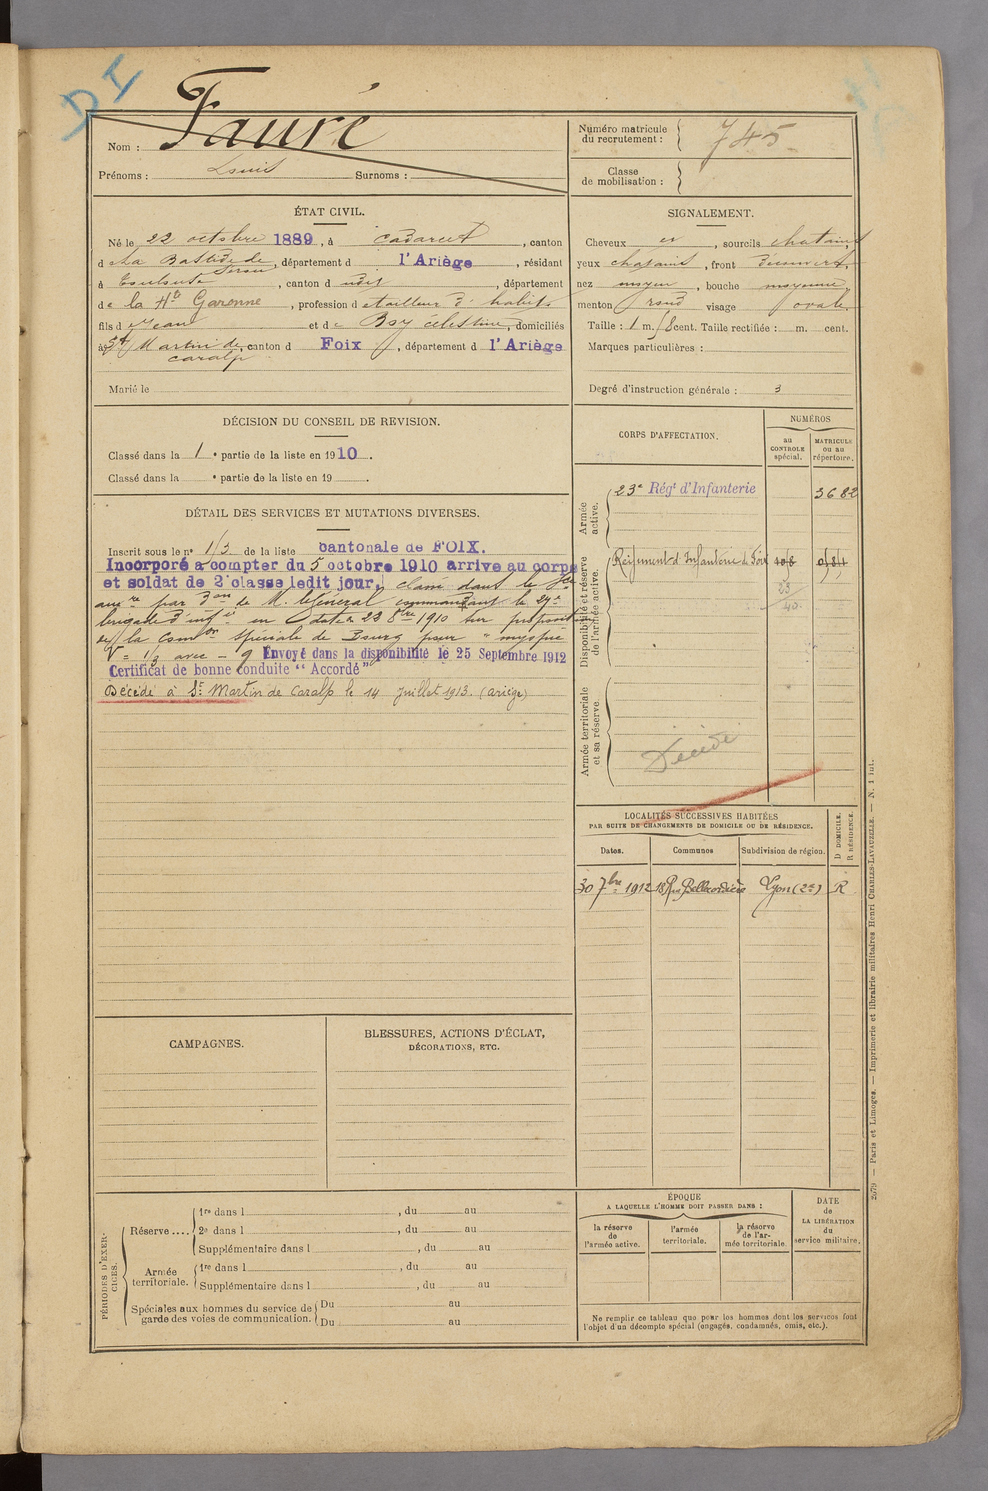 DI
Nom : Fauré
Prénoms : Louis Surnoms :
Numéro matricule du recrutement : 745
Classe de mobilisation :
ÉTAT CIVIL.
Né le 22 octobre 1889, à Cadarcet, canton
d e La Bastide de Sérou, département d l'Ariège, résidant
à Toulouse, canton d udit, département
de la Hte Garonne, profession de tailleur d'habits
fils de Jean et de Boy célestine, domiciliés
à St Martin de caralp, canton d Foix, département d l'Ariège
Marié le
SIGNALEMENT.
Cheveux et, sourcils chatains
yeux chatains, front découvert,
nez moyen, bouche moyenne,
menton rond visage ovale.
Taille : 1 m. 58 cent. Taille rectifiée : m. cent.
Marques particulières :
Degré d'instruction générale : 3
DÉCISION DU CONSEIL DE REVISION.
Classé dans la 1e partie de la liste en 1910.
Classé dans la e partie de la liste en 19 .
DÉTAIL DES SERVICES ET MUTATIONS DIVERSES.
Inscrit sous le n° 1/3 de la liste cantonale de FOIX.
Incorporé à compter du 5 octobre 1910 arrive au corps
et soldat de 2e classe ledit jour, classé dans le Sce
auxre par don de M. le Général commandant la 27e
brigade d'infie en date du 23 8bre 1910 sur proposition
de la Comon spéciale de Bourg pour "myopie
V = 1/3 avec - 9 Envoyé dans la disponibilité le 25 Septembre 1912
Certificat de bonne conduite "Accordé"
Décédé à St Martin de Caralp le 14 Juillet 1913. (ariège)
CORPS D'AFFECTATION.
NUMÉROS
au CONTROLE spécial.
MATRICULE ou au répertoire.
Armée active.
23e Régt d'Infanterie 3682
Disponibilité et réserve de l'armée active.
Régiment d'Infanterie de Foix
23
40
Armée territoriale et sa réserve.
Décédé
LOCALITÉS SUCCESSIVES HABITÉES
PAR SUITE DE CHANGEMENTS DE DOMICILE OU DE RÉSIDENCE.
Dates. Communes Subdivision de région. D DOMICILE. R RÉSIDENCE.
30 7bre 1912 18 Rue Bellecordière Lyon (2e) R
CAMPAGNES.
BLESSURES, ACTIONS D'ÉCLAT,
DÉCORATIONS, ETC.
PÉRIODES D'EXERCICES.
Réserve....
1re dans l , du au
2e dans l , du au
Supplémentaire dans l , du au
Armée territoriale.
1re dans l , du au
Supplémentaire dans l , du au
Spéciales aux hommes du service de garde des voies de communication.
Du au
Du au
ÉPOQUE
A LAQUELLE L'HOMME DOIT PASSER DANS :
la réserve de l'armée active.
l'armée territoriale.
la réserve de l'armée territoriale.
DATE de LA LIBÉRATION du service militaire.
Ne remplir ce tableau que pour les hommes dont les services font
l'objet d'un décompte spécial (engagés, condamnés, omis, etc.).
2679 — Paris et Limoges. — Imprimerie et librairie militaires Henri CHARLES-LAVAUZELLE. — N. 1 int.